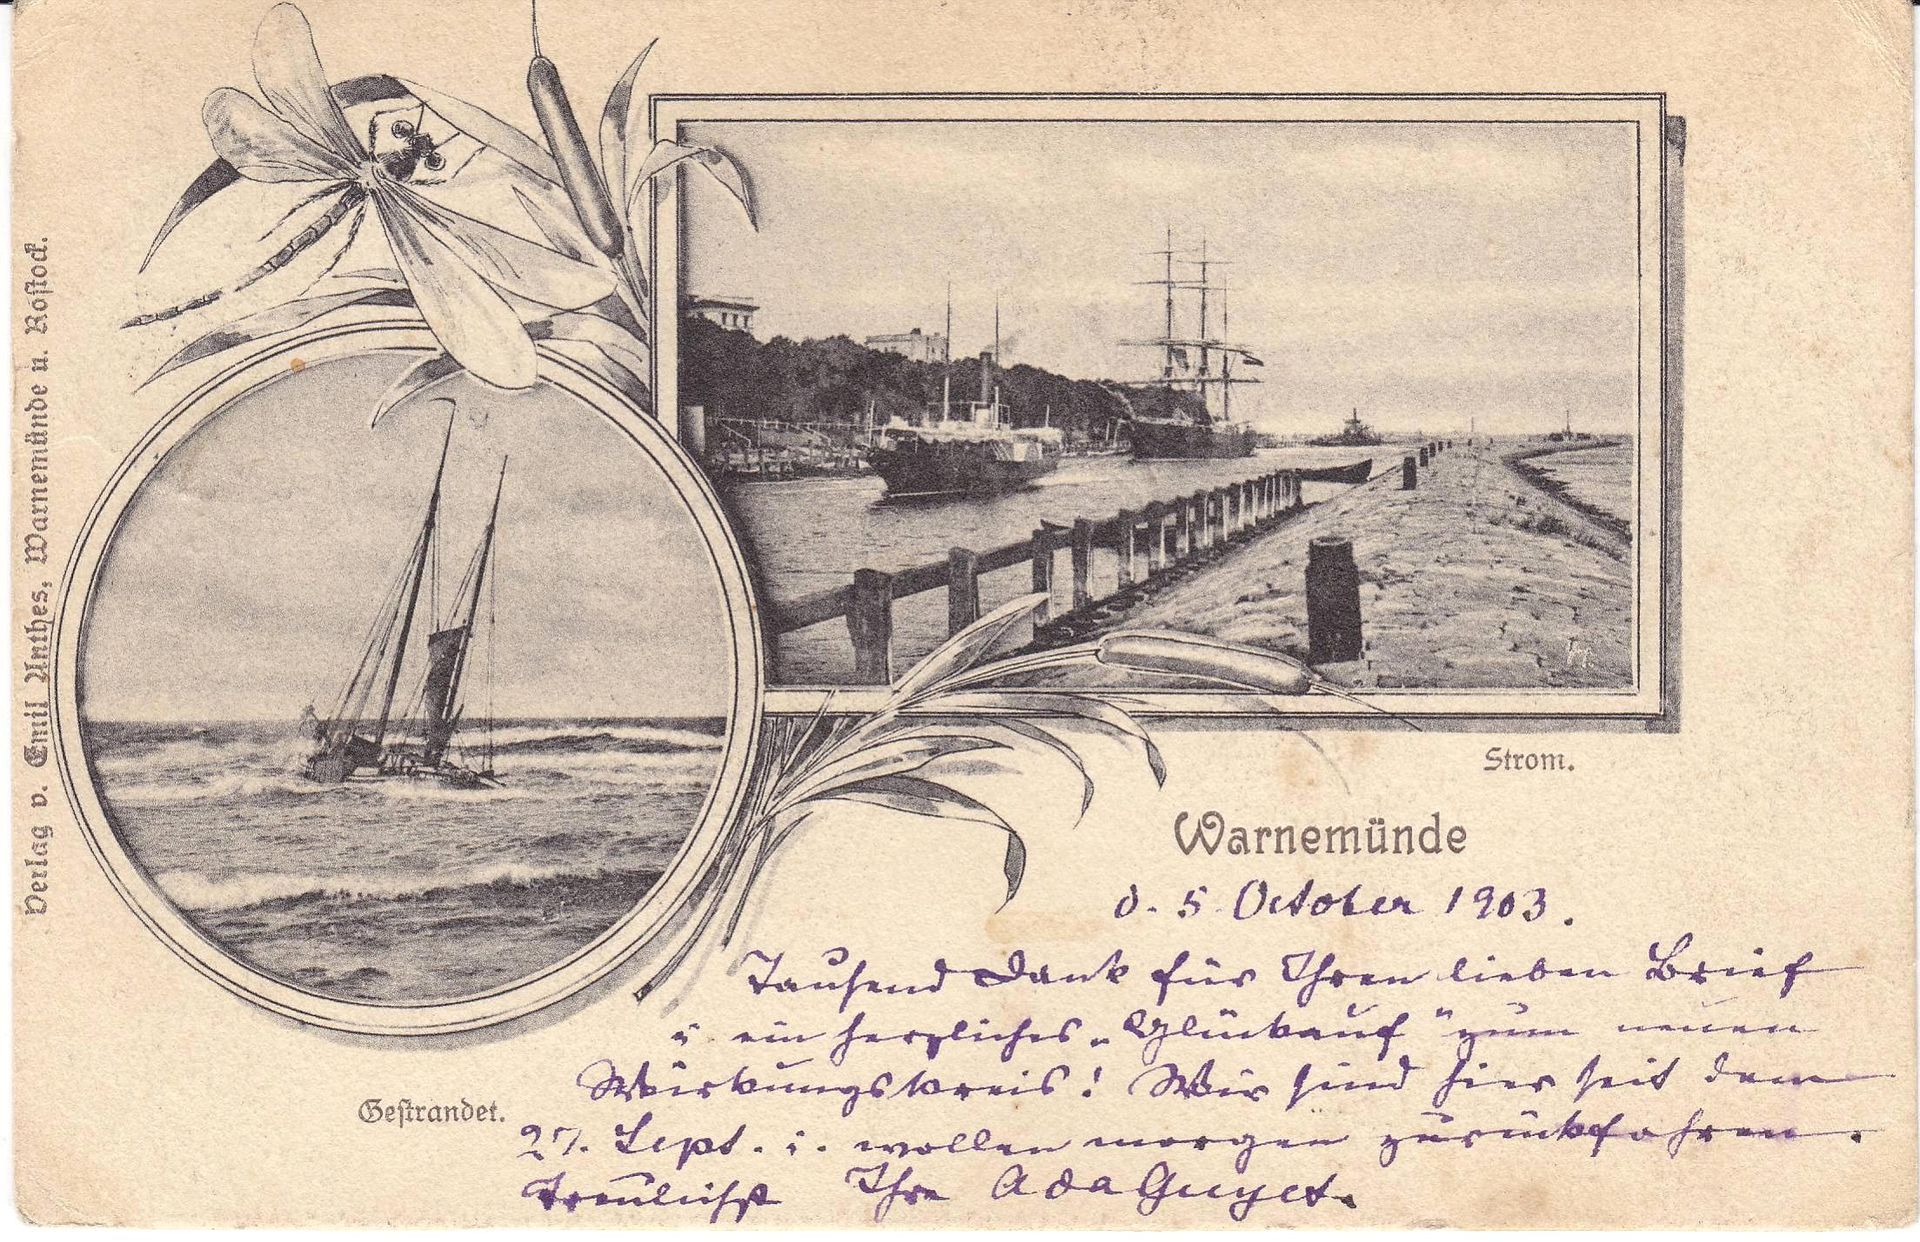 Verlag v. Emil Anthes, Warnemünde u. Rostock.
Strom.
Gestrandet.
Warnemünde
d. 5. October 1903.
Tausend Dank für Ihren lieben Brief
u. ein herzliches „Glückauf" zum neuen
Wirkungskreis! Wir sind hier seit dem
27. Sept. u. wollen morgen zurückfahren.
Treulichst Ihre Ada Guyet.